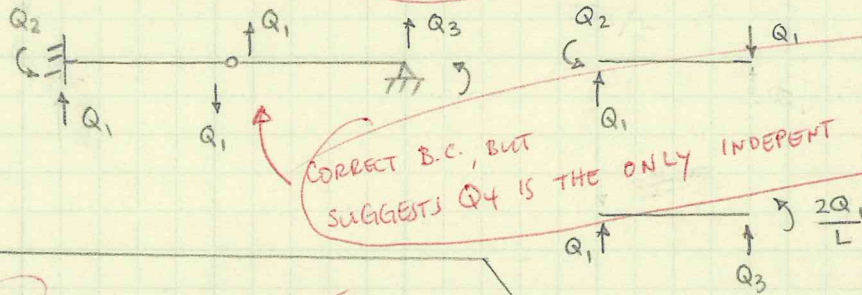 Q2 Q1 Q3
Q1 Q1
Q2 Q1
Q1
CORRECT B.C., BUT
SUGGESTS Q4 IS THE ONLY INDEPENT
Q1 Q3 2Q1/L